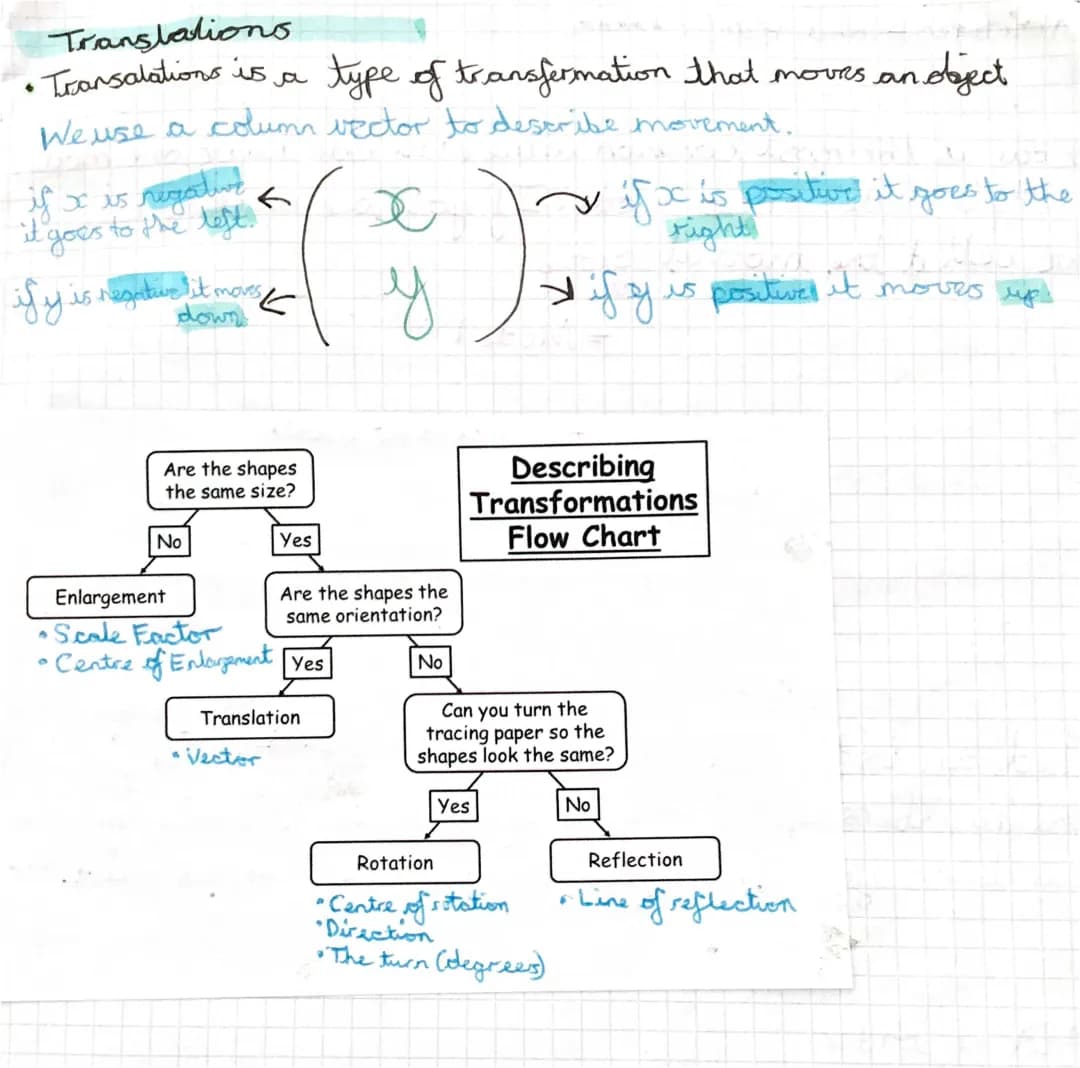 Translations
• Transalations is a type of transformation that moves an object
We use a column vector to describe movement.
if x is negative
it goes to the left.
x
if x is positive it goes to the
right
if y is negative it moves
down
y
if y is positive it moves up.
Describing
Transformations
Flow Chart
Are the shapes
the same size?
No
Yes
Enlargement
• Scale Factor
• Centre of Enlargement
Are the shapes the
same orientation?
Yes
No
Translation
• Vector
Can you turn the
tracing paper so the
shapes look the same?
Yes
No
Rotation
• Centre of rotation
• Direction
• The turn (degrees)
Reflection
• Line of reflection